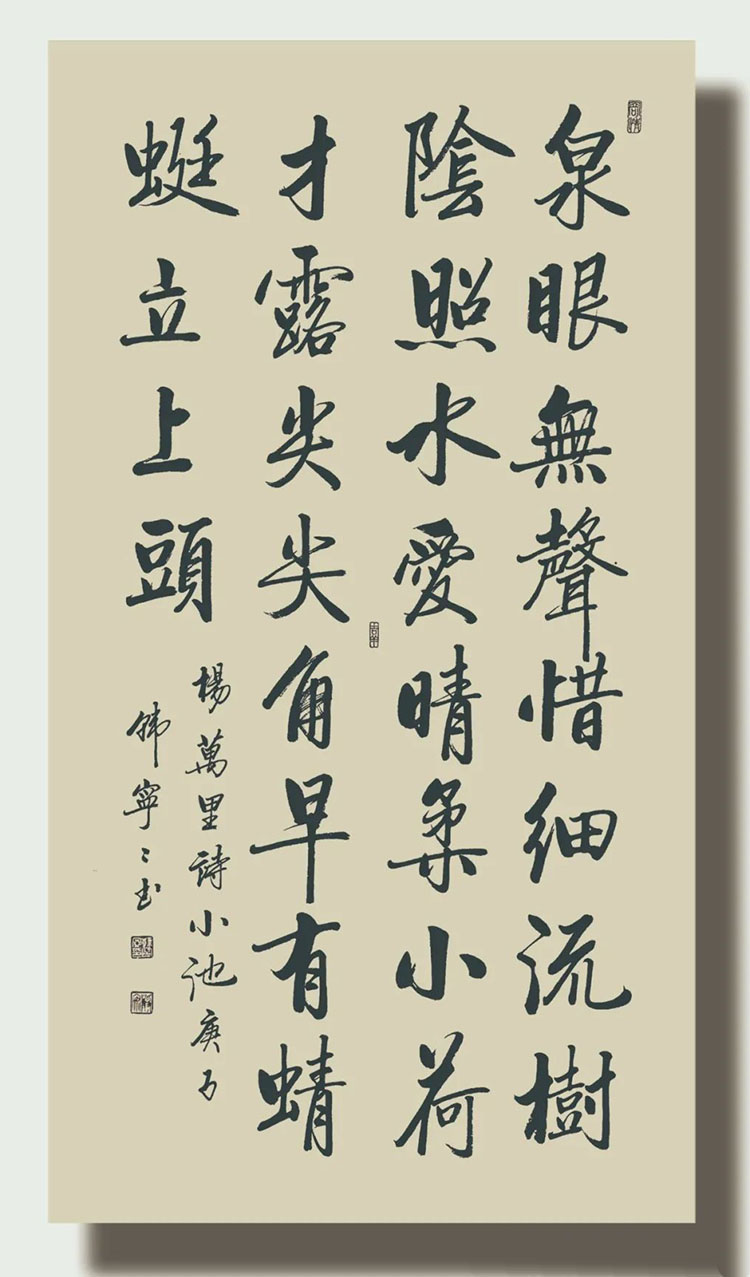 泉眼無聲惜細流樹
陰照水愛晴柔小荷
才露尖尖角早有蜻
蜓立上頭
楊萬里詩小池庚子
韩寧〻书